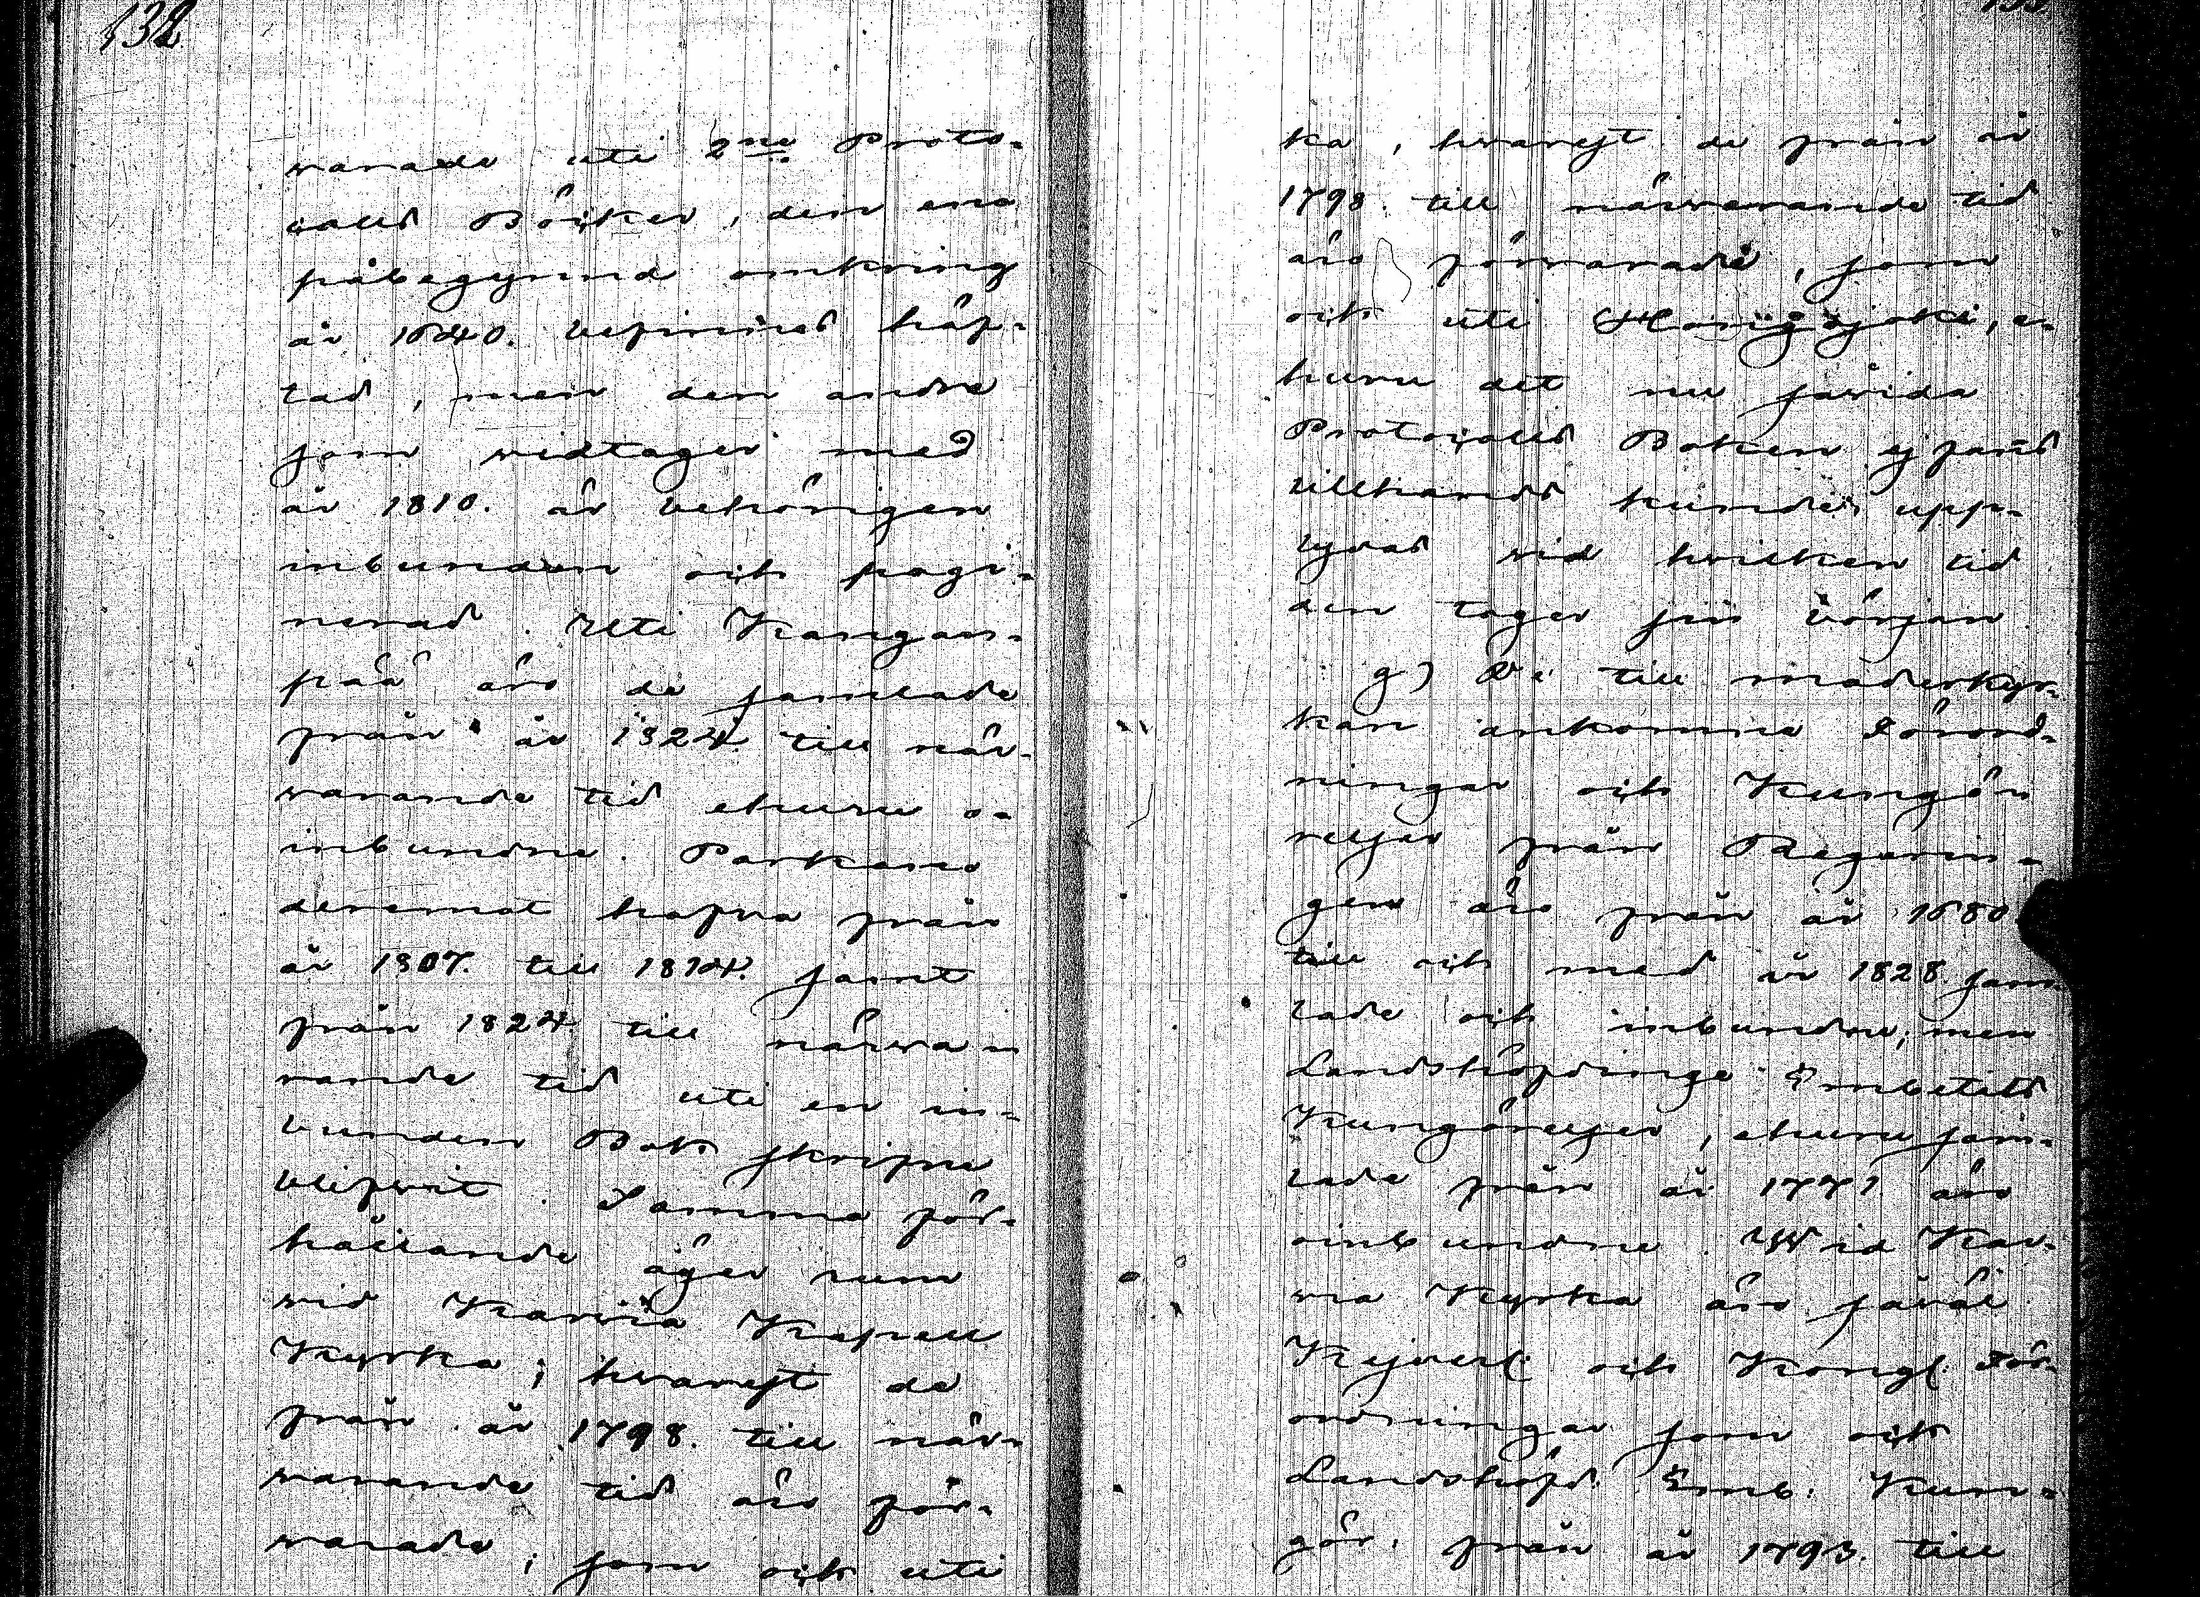 132
warade uti 2ne Proto-
colls Böcker, den ena
påbegynnd omkring
år 1640. befinnes häf-
tad, men den andra
som vidtager med
år 1810. är behörigen
inbunden och pagi-
nerad. Uti Kangan-
pää äro de samlade
från år 1824. till när-
varande tid ehuru o-
inbundne. Parkano
deremot hafva från
år 1807. till 1814. samt
från 1824 till närva-
rande tid uti en in-
bunden Bok skrifne
blifvit. Samma för-
hållande äger rum
vid Karvia Kapell
Kyrka; hvarest de
från år 1798. till när-
varande tid äro för-
varade; som ock uti
ka, hvarest de från år
1798. till närvarande tid
äro förvarade, som
ock uti Hongojoki, e-
huru det nu såvida
Protocolls Boken ej fans
tillhands kunde upp-
lysas vid hvilken tid
den tager sin början
g) De till moderkyr-
kan ankomne Förord-
ningar och Kungö-
relser från Regerin-
gen äro från år 1680
till och med år 1828 sam
lade och inbundne; men
Landshöfdinge Embetets
Kungörelser, ehuru sam-
lade från år 1771 äro
oinbundne. Wid Kar-
via Kyrka äro såväl
Kejserl. och Kongl. För-
ordningar som ock
Landshöfd. Emb. Kun-
gör. från år 1793. till